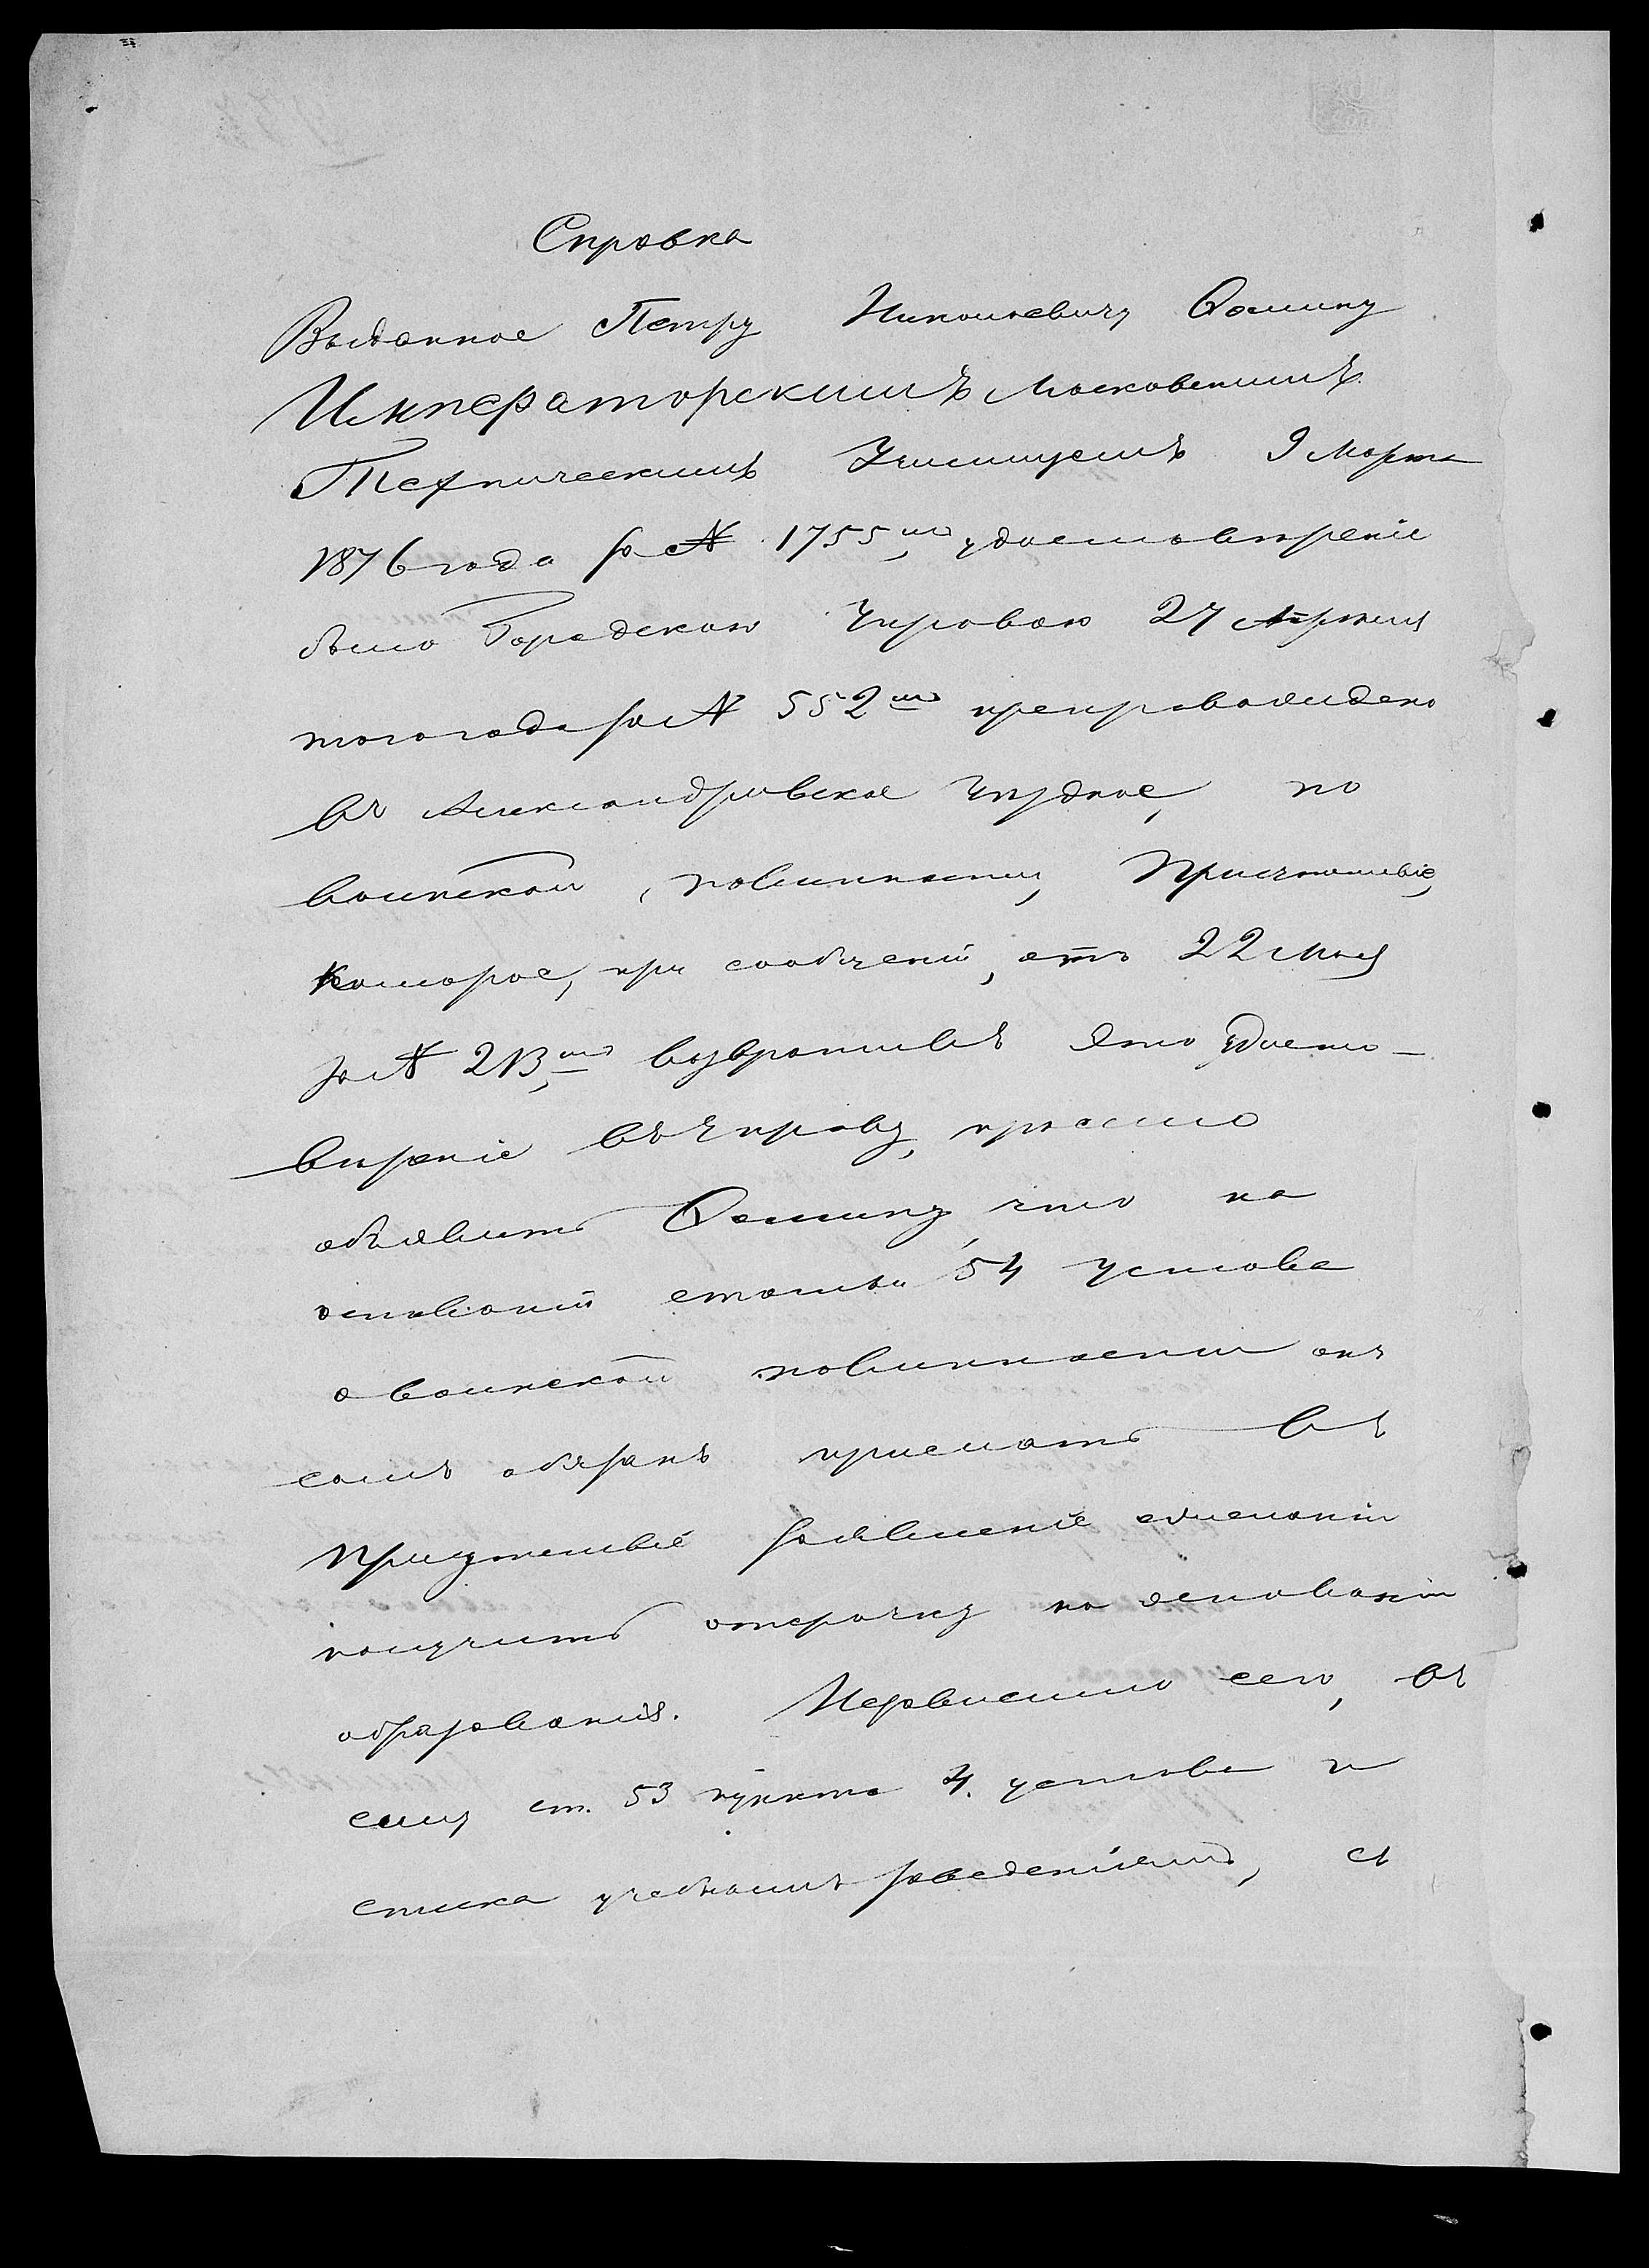 Справка
Выданное Петру Николаевичу Фомину
Императорскимъ Московскимъ
Техническимъ Училищемъ 9 Марта
1876 года за № 1755мъ, удостовѣреніе
было Городскою Управою 27 Апрѣля
того года за № 552мъ препровождено
въ Александровское Уѣздное, по
воинской повинности, Присутствіе,
которое, при сообщеніи, отъ 22 Мая
за № 213,мъ возвративъ это удосто-
вѣреніе въ Управу, просило
объявить Фомину, что на
основаніи статьи 54 устава
о воинской повинности онъ
самъ обязанъ прислать въ
Присутствіе заявленіе о желаніи
получить отсрочку на основаніи
образованія. Независимо сего, въ
силу ст. 53 пункта 4. устава и
списка учебнымъ заведеніямъ, съ